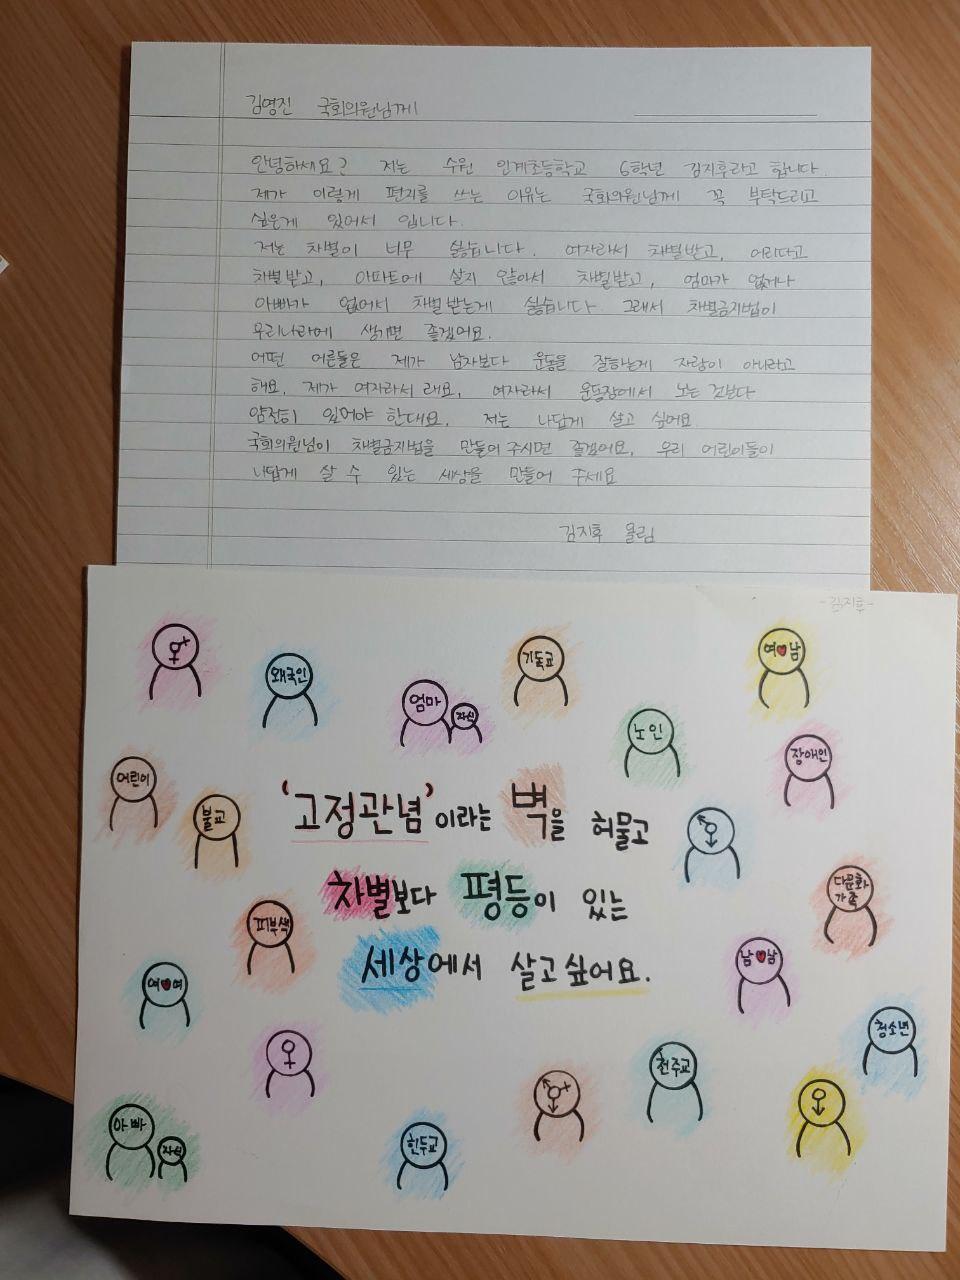 김영진 국회의원님께
안녕하세요? 저는 수원 인계초등학교 6학년 김지후라고 합니다.
제가 이렇게 편지를 쓰는 이유는 국회의원님께 꼭 부탁드리고
싶은게 있어서 입니다.
저는 차별이 너무 싫습니다. 여자라서 차별받고, 어리다고
차별받고, 아파트에 살지 않아서 차별받고, 엄마가 없거나
아빠가 없어서 차별받는게 싫습니다. 그래서 차별금지법이
우리나라에 생기면 좋겠어요.
어떤 어른들은 제가 남자보다 운동을 잘하는게 자랑이 아니라고
해요. 제가 여자라서 래요. 여자라서 운동장에서 노는 것보다
얌전히 있어야 한대요. 저는 나답게 살고 싶어요.
국회의원님이 차별금지법을 만들어 주시면 좋겠어요. 우리 어린이들이
나답게 살 수 있는 세상을 만들어 주세요
김지후 올림
-김지후-
외국인
엄마
자식
기독교
여♥남
노인
장애인
어린이
불교
'고정관념'이라는 벽을 허물고
차별보다 평등이 있는
세상에서 살고싶어요.
다문화
가족
피부색
여♥여
남♥남
청소년
천주교
아빠
자식
힌두교